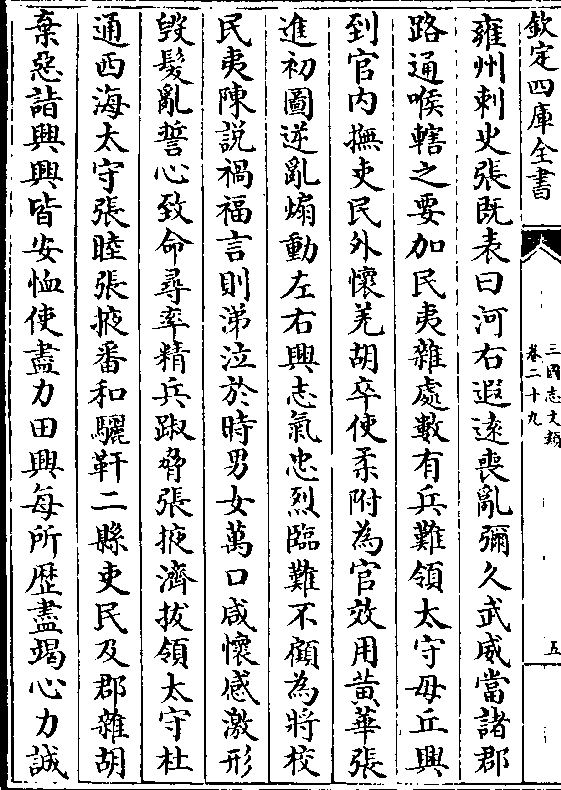 欽定四庫全書
雍州刺史張既表曰河右遐逺喪亂彌久武威當諸郡
路通喉轄之要加民夷雜處數有兵難領太守毋丘興
到官内撫吏民外懷羌胡卒使柔附為官效用黄華張
進初圖逆亂煽動左右興志氣忠烈臨難不顧為將校
民夷陳説禍福言則涕泣於時男女萬口咸懷感激形
毁髮亂誓心致命尋率精兵踧脅張掖濟拔領太守杜
通西海太守張睦張掖番和驪靬二縣吏民及郡雜胡
棄惡詣興興皆安恤使盡力田興每所歴盡竭心力誠
三國志文類
卷二十九
五